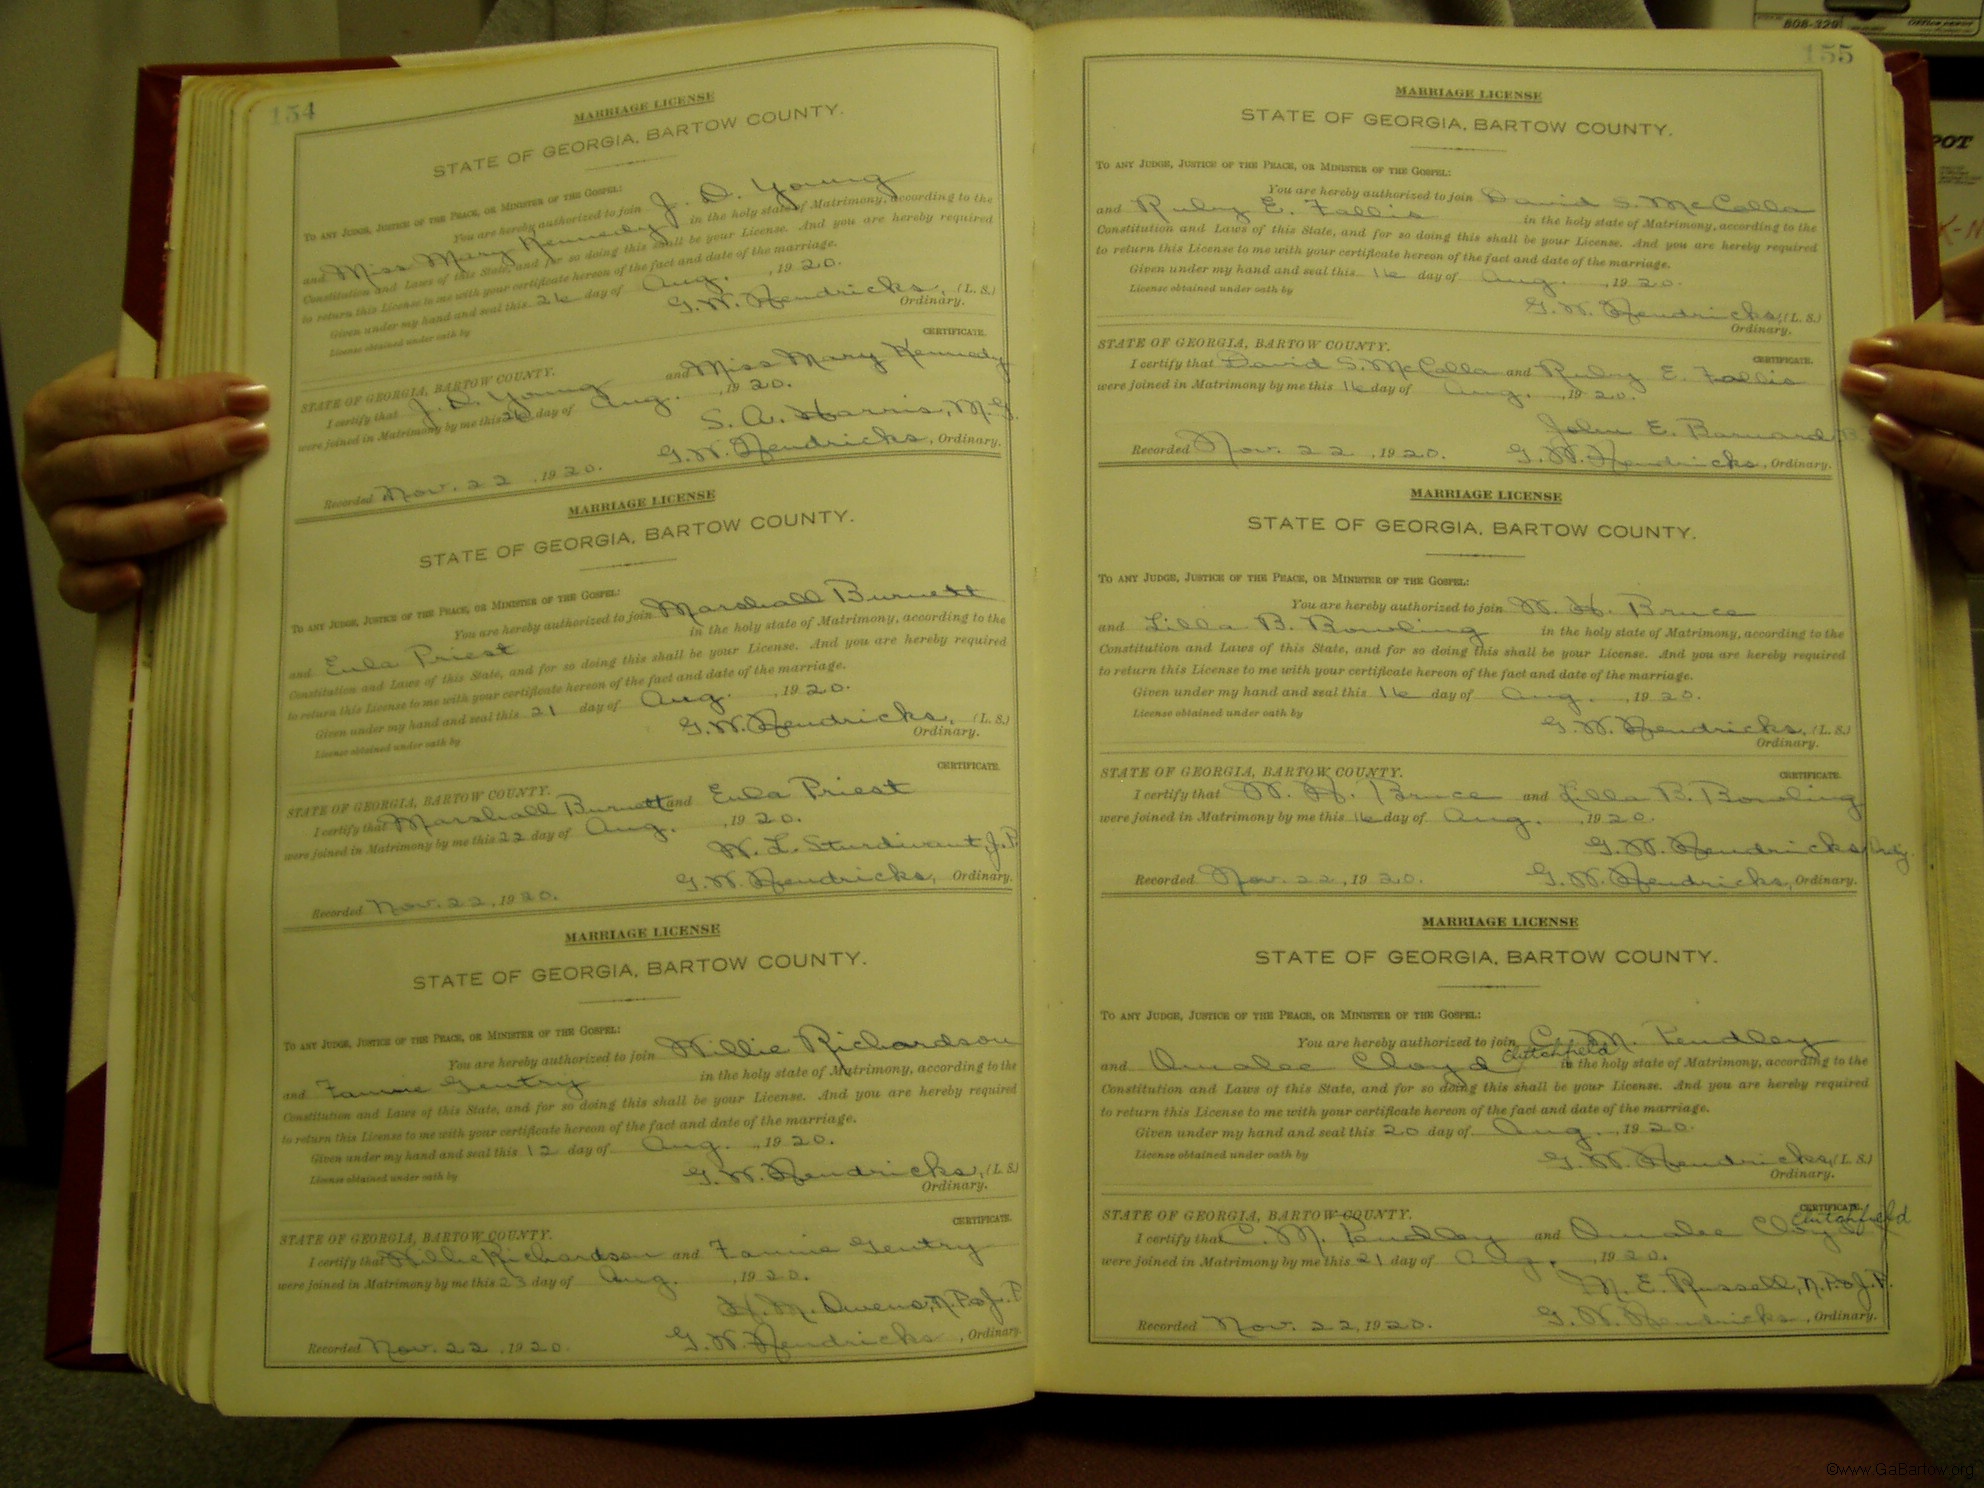 154
MARRIAGE LICENSE
STATE OF GEORGIA, BARTOW COUNTY.
TO ANY JUDGE, JUSTICE OF THE PEACE, OR MINISTER OF THE GOSPEL:
You are hereby authorized to join J. D. Young
and Miss Mary Kennedy in the holy state of Matrimony, according to the
Constitution and Laws of this State, and for so doing this shall be your License. And you are hereby required
to return this License to me with your certificate hereon of the fact and date of the marriage.
Given under my hand and seal this 26 day of Aug. , 1920.
License obtained under oath by
G.W. Hendricks, (L. S.)
Ordinary.
CERTIFICATE.
STATE OF GEORGIA, BARTOW COUNTY.
I certify that J. D. Young and Miss Mary Kennedy
were joined in Matrimony by me this 26 day of Aug. , 1920.
S. A. Harris, M.G.
Recorded Nov. 22 , 1920. G.W. Hendricks, Ordinary.
MARRIAGE LICENSE
STATE OF GEORGIA, BARTOW COUNTY.
TO ANY JUDGE, JUSTICE OF THE PEACE, OR MINISTER OF THE GOSPEL:
You are hereby authorized to join Marshall Burnett
and Eula Priest in the holy state of Matrimony, according to the
Constitution and Laws of this State, and for so doing this shall be your License. And you are hereby required
to return this License to me with your certificate hereon of the fact and date of the marriage.
Given under my hand and seal this 21 day of Aug. , 1920.
License obtained under oath by
G.W. Hendricks, (L. S.)
Ordinary.
CERTIFICATE.
STATE OF GEORGIA, BARTOW COUNTY.
I certify that Marshall Burnett and Eula Priest
were joined in Matrimony by me this 22 day of Aug. , 1920.
W. L. Sturdivant J.P.
Recorded Nov. 22, 1920. G.W. Hendricks, Ordinary.
MARRIAGE LICENSE
STATE OF GEORGIA, BARTOW COUNTY.
TO ANY JUDGE, JUSTICE OF THE PEACE, OR MINISTER OF THE GOSPEL:
You are hereby authorized to join Willie Richardson
and Fannie Gentry in the holy state of Matrimony, according to the
Constitution and Laws of this State, and for so doing this shall be your License. And you are hereby required
to return this License to me with your certificate hereon of the fact and date of the marriage.
Given under my hand and seal this 12 day of Aug. , 1920.
License obtained under oath by
G.W. Hendricks, (L. S.)
Ordinary.
CERTIFICATE.
STATE OF GEORGIA, BARTOW COUNTY.
I certify that Willie Richardson and Fannie Gentry
were joined in Matrimony by me this 23 day of Aug. , 1920.
H. M. Owens, N.P.&J.P
Recorded Nov. 22 , 1920. G.W. Hendricks , Ordinary.
155
MARRIAGE LICENSE
STATE OF GEORGIA, BARTOW COUNTY.
TO ANY JUDGE, JUSTICE OF THE PEACE, OR MINISTER OF THE GOSPEL:
You are hereby authorized to join David S. McColla
and Ruby E. Fallis in the holy state of Matrimony, according to the
Constitution and Laws of this State, and for so doing this shall be your License. And you are hereby required
to return this License to me with your certificate hereon of the fact and date of the marriage.
Given under my hand and seal this 16 day of Aug. , 1920.
License obtained under oath by
G.W. Hendricks, (L. S.)
Ordinary.
STATE OF GEORGIA, BARTOW COUNTY. CERTIFICATE.
I certify that David S. McColla and Ruby E. Fallis
were joined in Matrimony by me this 16 day of Aug. , 1920.
John E. Barnard
Recorded Nov. 22 , 1920. G.W. Hendricks, Ordinary.
MARRIAGE LICENSE
STATE OF GEORGIA, BARTOW COUNTY.
TO ANY JUDGE, JUSTICE OF THE PEACE, OR MINISTER OF THE GOSPEL:
You are hereby authorized to join W. H. Bruce
and Lilla B. Bowling in the holy state of Matrimony, according to the
Constitution and Laws of this State, and for so doing this shall be your License. And you are hereby required
to return this License to me with your certificate hereon of the fact and date of the marriage.
Given under my hand and seal this 16 day of Aug. , 1920.
License obtained under oath by
G.W. Hendricks, (L. S.)
Ordinary.
STATE OF GEORGIA, BARTOW COUNTY. CERTIFICATE.
I certify that W. H. Bruce and Lilla B. Bowling
were joined in Matrimony by me this 16 day of Aug. , 1920.
G.W. Hendricks, Ordy.
Recorded Nov. 22, 1920. G.W. Hendricks, Ordinary.
MARRIAGE LICENSE
STATE OF GEORGIA, BARTOW COUNTY.
TO ANY JUDGE, JUSTICE OF THE PEACE, OR MINISTER OF THE GOSPEL:
You are hereby authorized to join C. M. Pendley
and Omalee Cloyd Cutchfield in the holy state of Matrimony, according to the
Constitution and Laws of this State, and for so doing this shall be your License. And you are hereby required
to return this License to me with your certificate hereon of the fact and date of the marriage.
Given under my hand and seal this 20 day of Aug. , 1920.
License obtained under oath by
G.W. Hendricks, (L. S.)
Ordinary.
CERTIFICATE.
STATE OF GEORGIA, BARTOW COUNTY.
I certify that C. M. Pendley and Omalee Cloyd Cutchfield
were joined in Matrimony by me this 21 day of Aug. , 1920.
M. E. Russell, N.P.&J.P.
Recorded Nov. 22, 1920. G.W. Hendricks, Ordinary.
808-329
OFFICE DEPOT
POT
K-N
©www.GaBartow.org